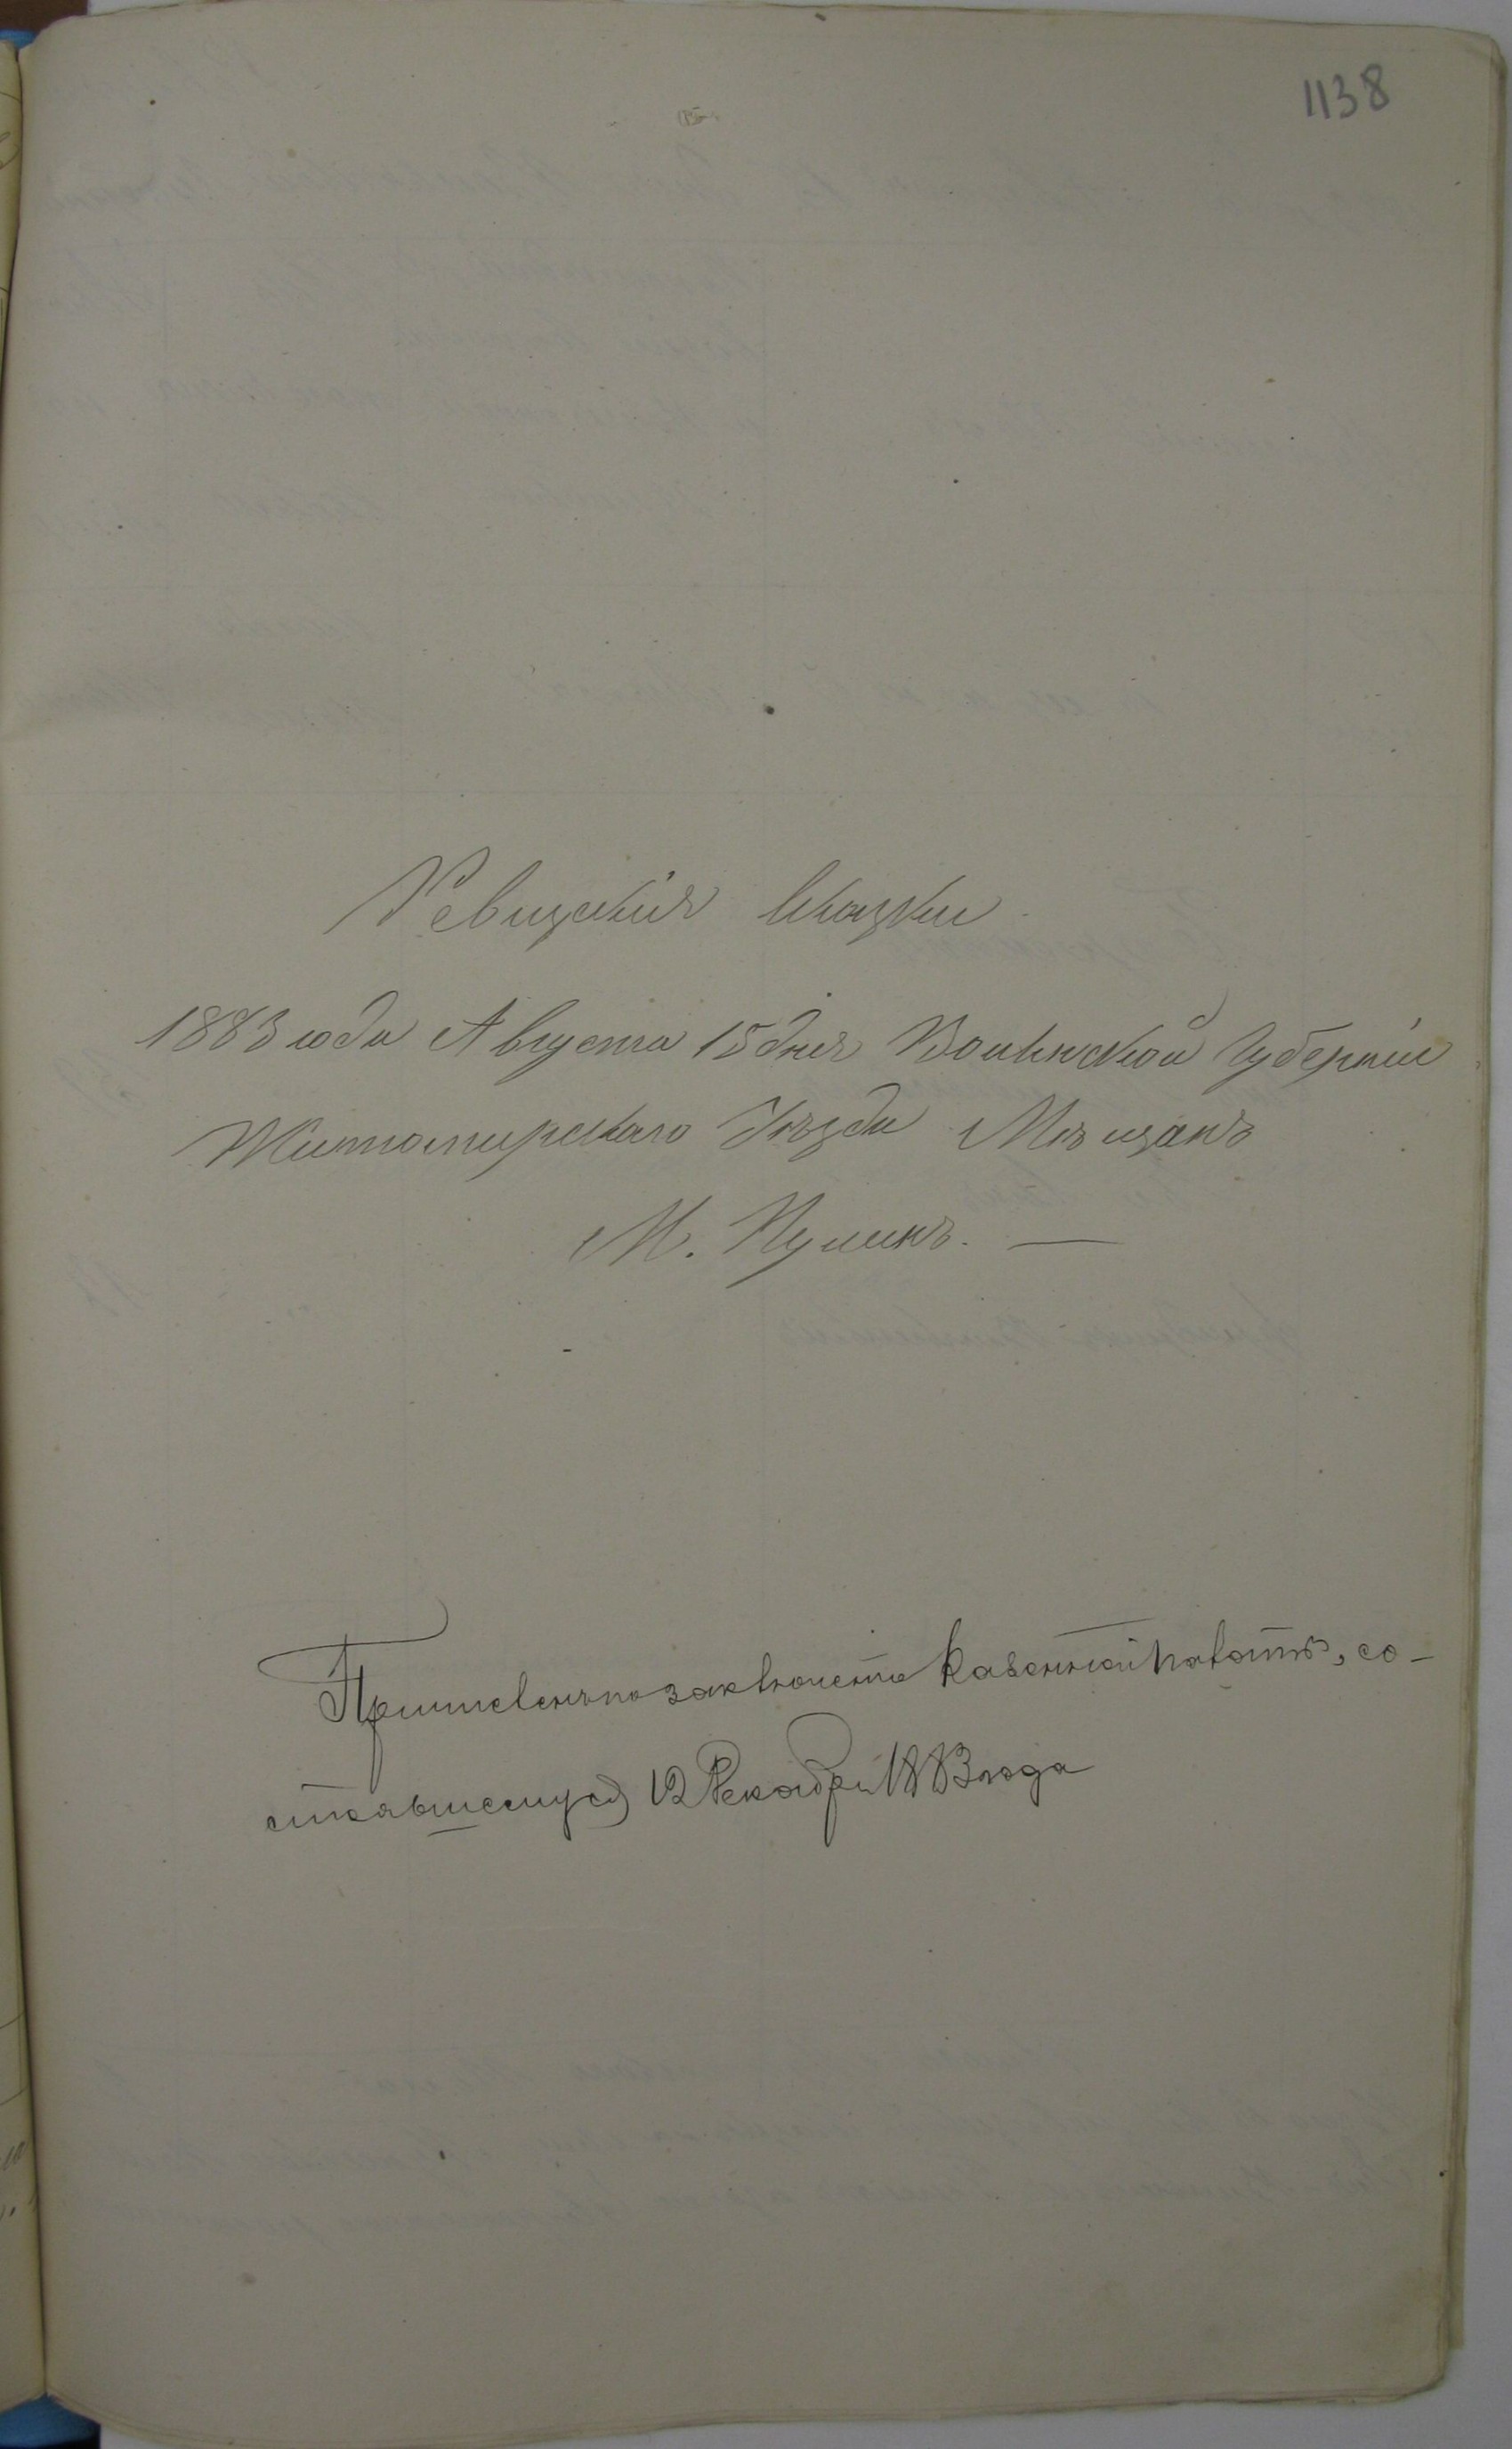 1138
Ревизскія Сказки
1883 года Августа 15 дня Волынской Губерніи
Житомирского Уѣзда Мѣщанъ
М. Пулинъ. —
по заключенію Казенной Палаты, со-
стоявшемуся 12 Декабря 1883 года